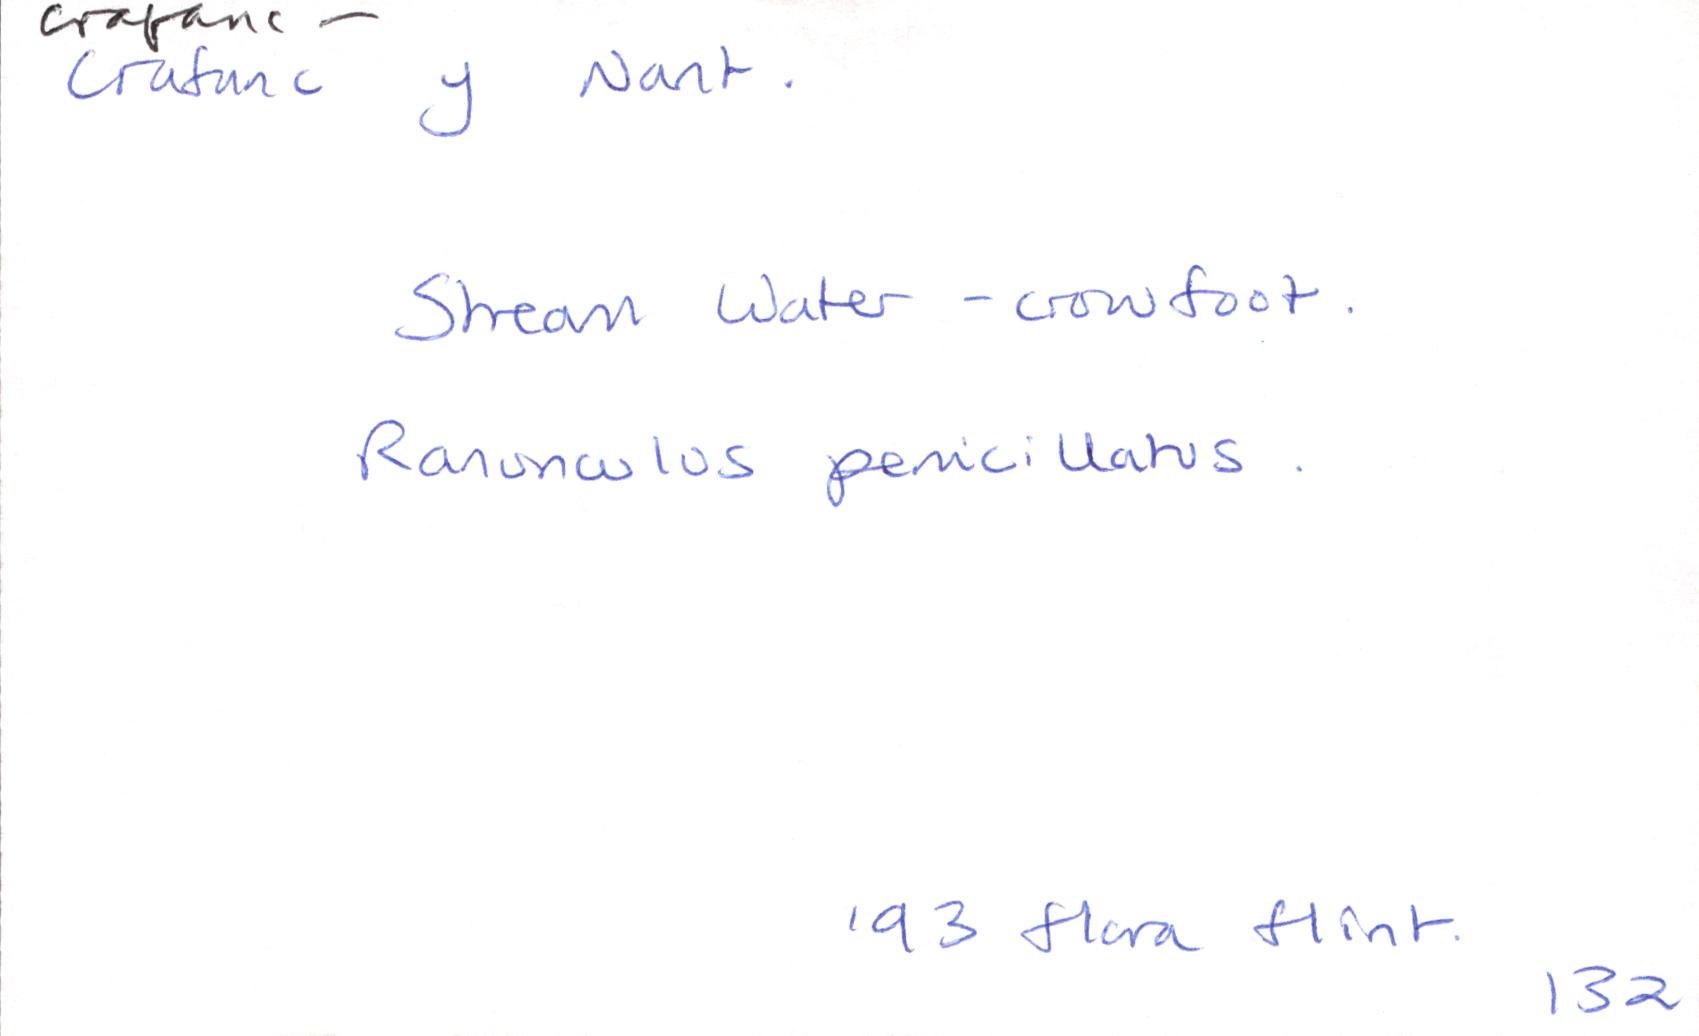 crafanc –
Crafanc y Nant.
Stream Water - crowfoot.
Ranunculus penicillatus.
'93 flora flint.
132